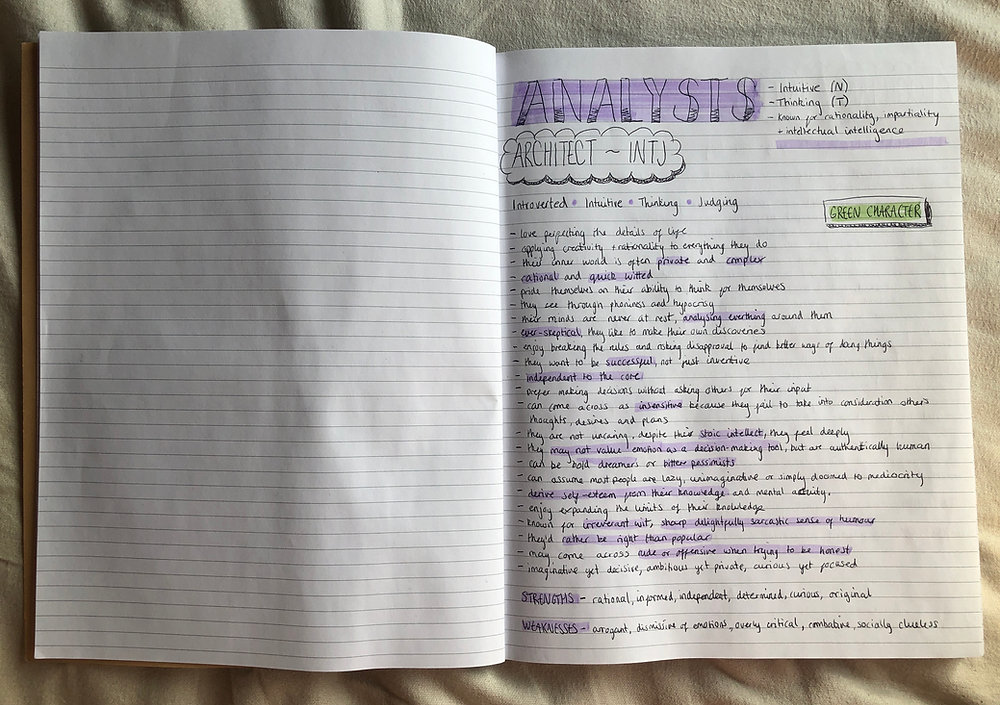 ANALYSTS
- Intuitive (N)
- Thinking (T)
- Known for rationality, impartiality
+ intellectual intelligence
ARCHITECT ~ INTJ
Introverted • Intuitive • Thinking • Judging
GREEN CHARACTER
- love perfecting the details of life
- applying creativity + rationality to everything they do
- their inner world is often private and complex
- rational and quick witted
- pride themselves on their ability to think for themselves
- they see through phoniness and hypocrisy
- their minds are never at rest, analysing everthing around them
- ever-skeptical, they like to make their own discoveries
- enjoy breaking the rules and risking disapproval to find better ways of doing things
- they want to be successful, not just inventive
- independent to the core
- prefer making decisions without asking others for their input
- can come across as insensitive because they fail to take into consideration others
thoughts, desires and plans
- they are not uncaring, despite their stoic intellect, they feel deeply
- they may not value emotion as a decision-making tool, but are authentically human
- can be bold dreamers or bitter pessimists
- can assume most people are lazy, unimaginative or simply doomed to mediocrity
- derive self-esteem from their knowledge and mental acuity.
- enjoy expanding the limits of their knowledge
- known for irreverant wit, sharp delightfully sarcastic sense of humour
- they'd rather be right than popular
- may come across rude or offensive when trying to be honest
- imaginative yet decisive, ambitious yet private, curious yet focused
STRENGTHS - rational, informed, independent, determined, curious, original
WEAKNESSES - arrogant, dismissive of emotions, overly critical, combative, socially clueless